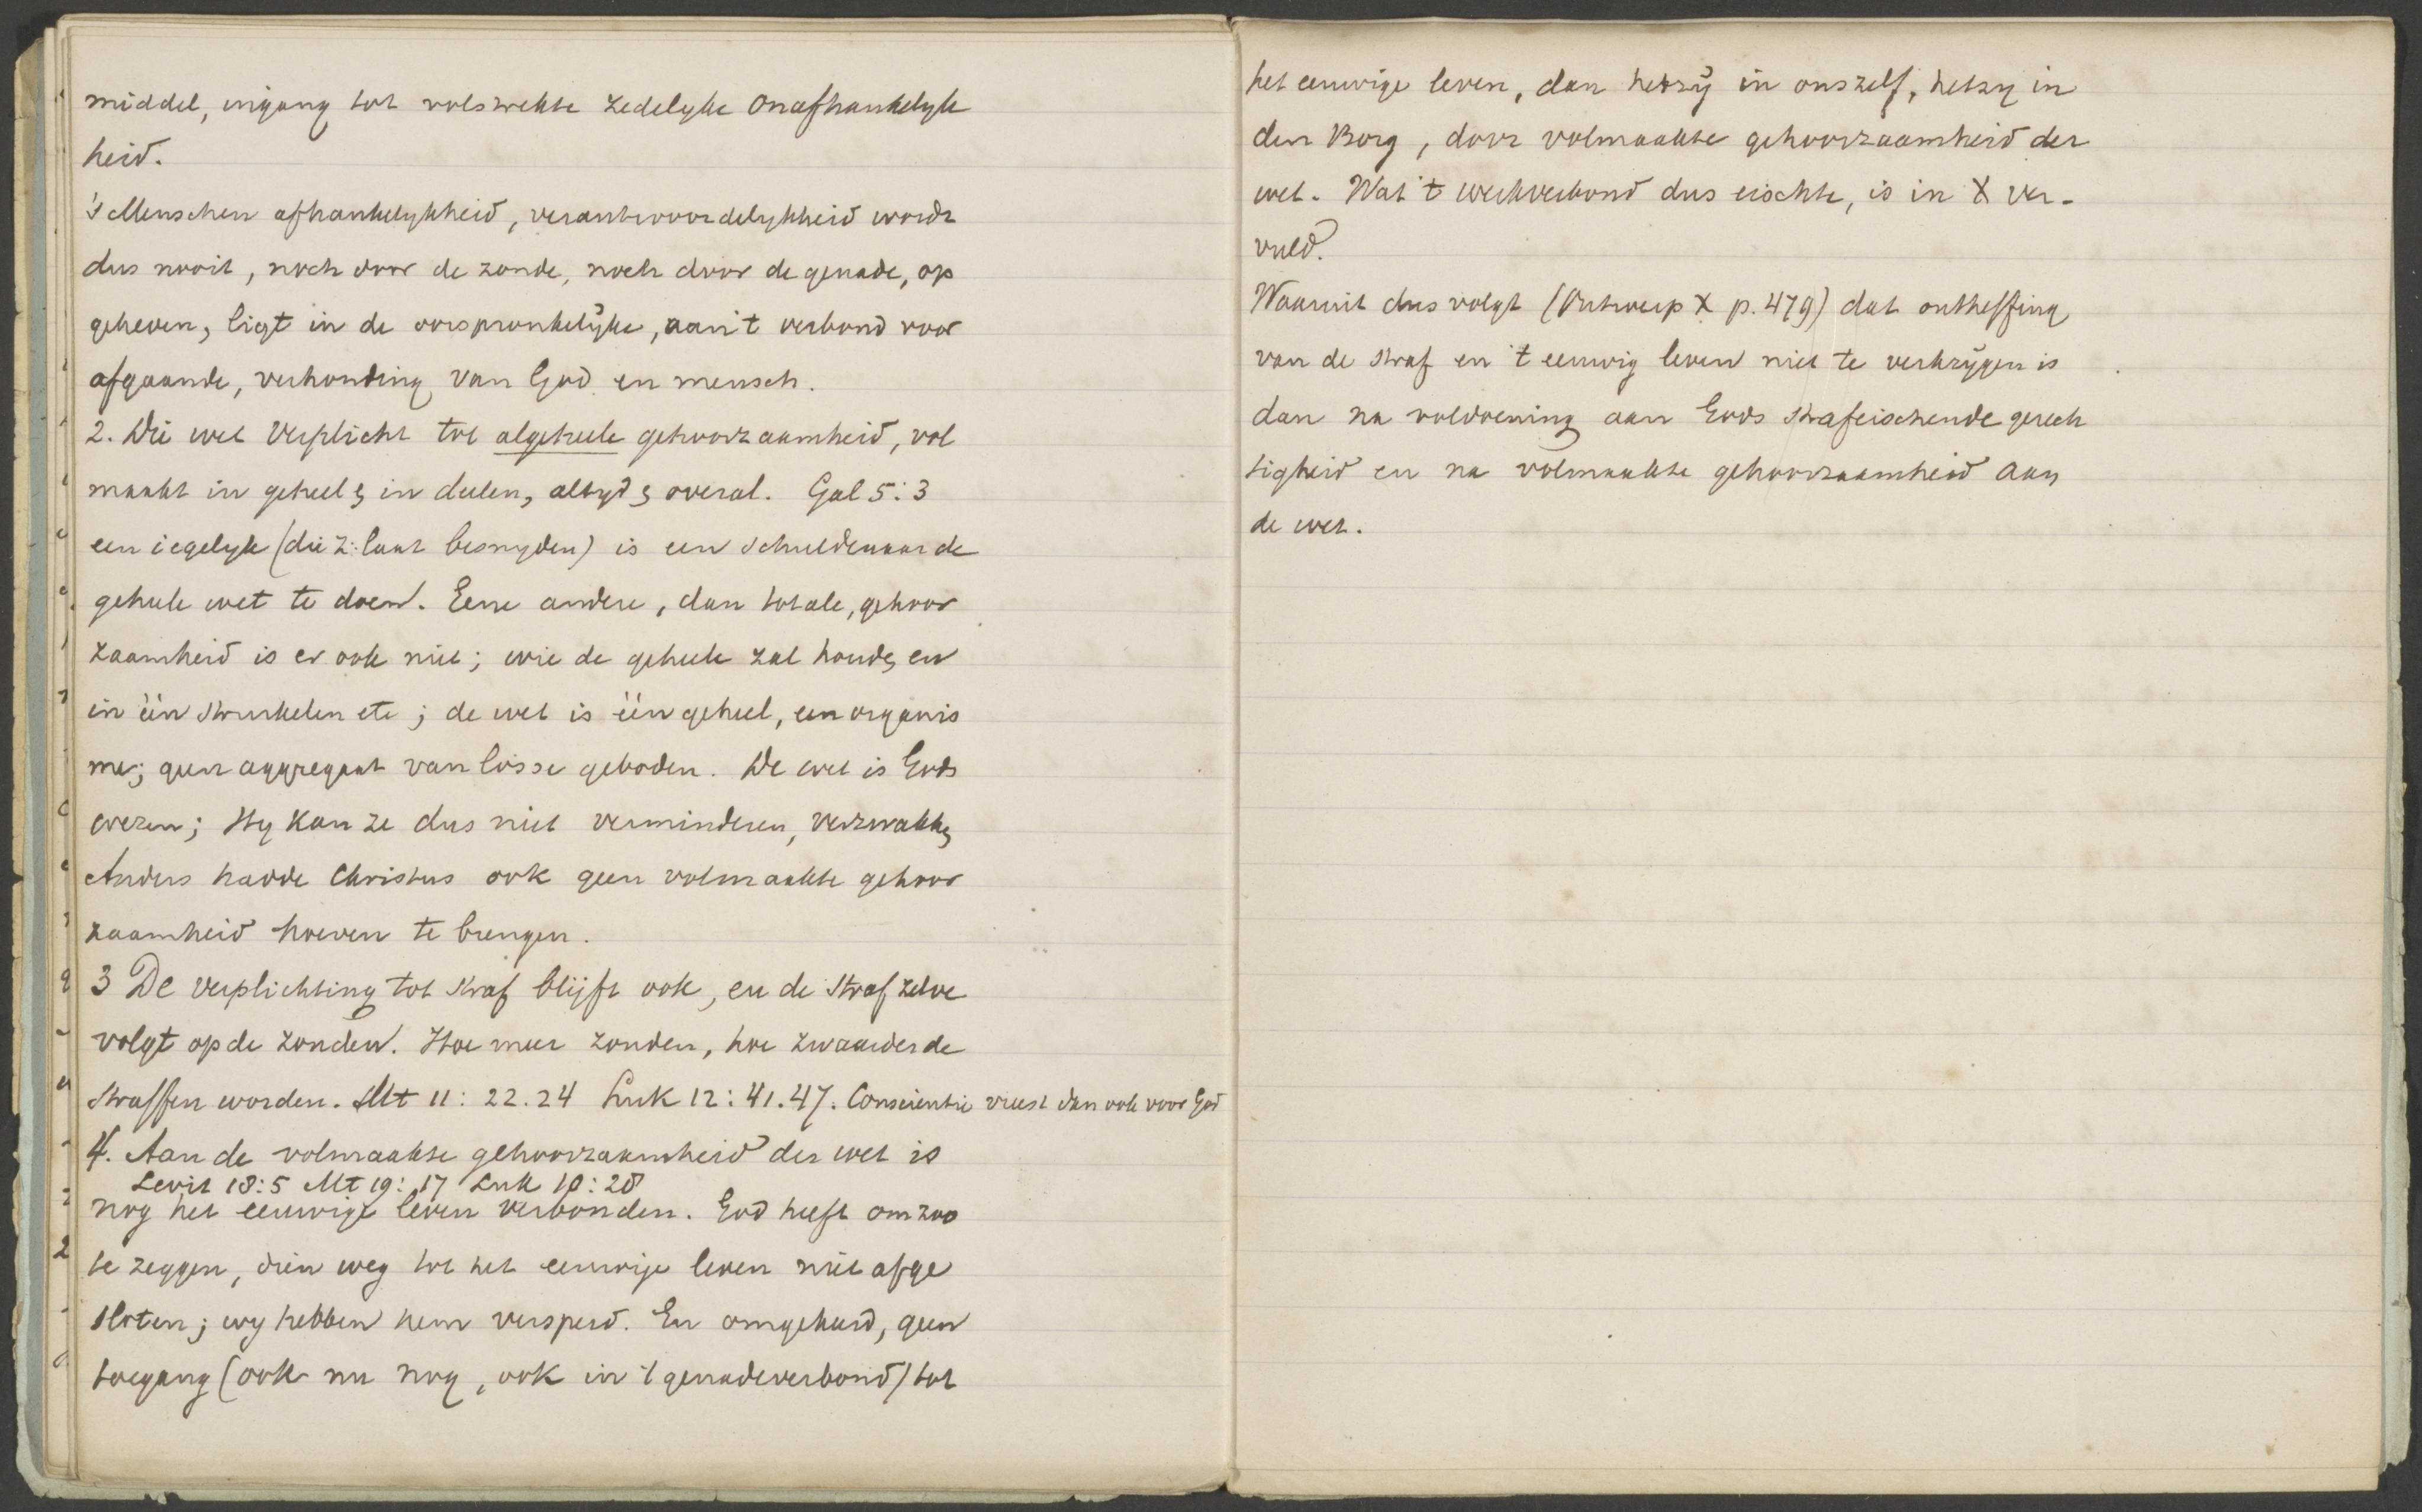 middel, ingang tot volstrekte zedelyke onafhankelyk
heid.
's Menschen afhankelykheid, verantwoordelykheid wordt
dus nooit, noch door de zonde, noch door de genade, op
geheven, ligt in de oorspronkelijke, aan 't verbond voor
afgaande, verhouding van God en mensch.
2. Die wet verplicht tot algeheele gehoorzaamheid, vol
maakt in geheel & in deelen, altyd & overal. Gal 5:3
een iegelyk (die z: laat besnyden) is een schuldenaar de
geheele wet te doen. Eene andere, dan totale, gehoor
zaamheid is er ook niet; wie de geheele zal houden en
in één struikelen etc; de wet is één geheel, een organis
me; geen aggregaat van losse geboden. De wet is Gods
wezen; Hy kan ze dus niet verminderen, verzwakken
Anders hadde Christus ook geen volmaakte gehoor
zaamheid hoeven te brengen.
3 De verplichting tot straf blijft ook, en de straf zelve
volgt op de zonden. Hoe meer zonden, hoe zwaarder de
straffen worden. Mt 11: 22.24 Luk 12: 41.47. Conscientie vreest dan ook voor God
4. Aan de volmaakte gehoorzaamheid der wet is
Levit 18:5 Mt 19: 17 Luk 10: 28
nog het eeuwige leven verbonden. God heeft om zoo
te zeggen, dien weg tot het eeuwige leven niet afge
sloten; wy hebben hem versperd. En omgekeerd, geen
toegang (ook nu nog, ook in 't genadeverbond) tot
het eeuwige leven, dan hetzij in ons zelf, hetzy in
den Borg, door volmaakte gehoorzaamheid der
wet. Wat 't werkverbond dus eischte, is in X ver-
vuld.
Waaruit dus volgt (Ontwerp X p. 479) dat ontheffing
van de straf en 't eeuwig leven niet te verkrijgen is
dan na voldoening aan Gods strafeischende gerech
tigheid en na volmaakte gehoorzaamheid aan
de wet.